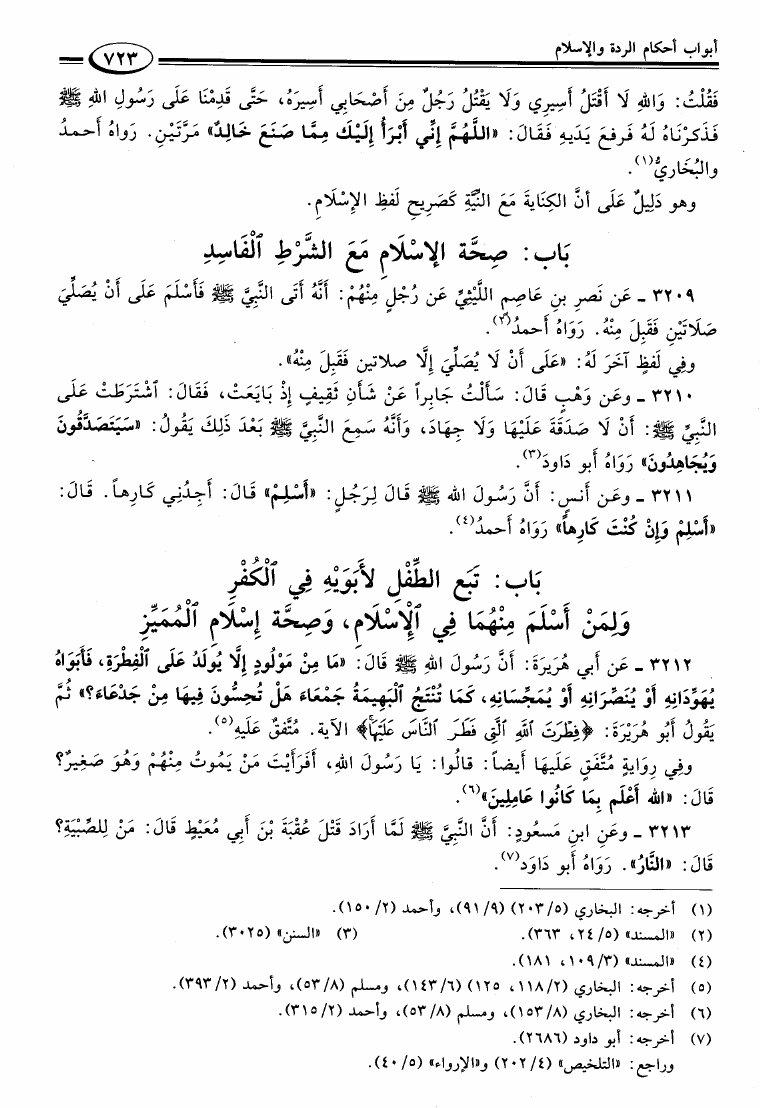 أبواب أحكام الردة والإسلام
٧٢٣
فَقُلْتُ: وَاللهِ لَا أَقْتَلُ أَسِيرِي وَلَا يَقْتُلُ رَجُلٌ مِنَ أَصْحَابِي أَسِيرَهُ، حَتَّى قَدِمْنَا عَلَى رَسُولِ اللهِ ﷺ
فَذَكَرْنَاهُ لَهُ فرفعَ يَدَيهِ فَقَالَ: «اللَّهُمَّ إِنِّي أَبْرَأُ إِلَيْكَ مِمَّا صَنَعَ خَالِدٌ» مَرَّتَيْنِ. رَوَاهُ أَحمدُ
والبُخَاريُّ(١).
وهو دَلِيلٌ عَلَى أنَّ الكِنايَةَ مَعَ النِّيَّةِ كَصَرِيحِ لَفظِ الإِسْلَامِ.
بَاب: صِحَّة الإِسْلَامِ مَعَ الشَّرْطِ ٱلْفَاسِدِ
٣٢٠٩ ـ عَن نَصرِ بنِ عَاصِمٍ اللَّيْثِيِّ عَن رَجُلٍ مِنْهُمْ: أَنَّهُ أَتَى النَّبِيَّ ﷺ فَأَسْلَمَ عَلَى أَنْ يُصَلِّيَ
صَلَاتَيْنِ فَقَبِلَ مِنْهُ. رَوَاهُ أَحمدُ(٢).
وفِي لَفظٍ آخَرَ لَهُ: «عَلَى أَنْ لَا يُصَلِّيَ إِلَّا صلاتين فَقَبِلَ مِنْهُ».
٣٢١٠ ـ وعَن وَهْبٍ قَالَ: سَأَلْتُ جَابِراً عَنْ شَأنِ ثَقِيفٍ إِذْ بَايَعَتْ، فَقَالَ: ٱشْتَرَطَتْ عَلَى
النَّبِيِّ ﷺ: أَنْ لَا صَدَقَةَ عَلَيْهَا وَلَا جِهَادَ، وَأَنَّهُ سَمِعَ النَّبِيَّ ﷺ بَعْدَ ذَلِكَ يَقُولُ: «سَيَتَصَدَّقُونَ
وَيُجَاهِدُونَ» رَوَاهُ أَبو دَاودَ(٣).
٣٢١١ ـ وعَن أَنسٍ: أَنَّ رَسُولَ الله ﷺ قَالَ لِرَجُلٍ: «أَسْلِمْ» قَالَ: أَجِدُنِي كَارِهاً. قَالَ:
«أَسْلِمْ وَإِنْ كُنْتَ كَارِهاً» رَوَاهُ أَحمدُ(٤).
بَاب: تَبَع الطِّفْلِ لأَبَوَيْهِ فِي ٱلْكُفْرِ
وَلِمَنْ أَسْلَمَ مِنْهُمَا فِي ٱلْإِسْلَامِ، وَصِحَّة إِسْلَامِ ٱلْمُمَيِّزِ
٣٢١٢ ـ عَن أَبي هُرَيرَةَ: أَنَّ رَسُولَ اللهِ ﷺ قَالَ: «مَا مِنْ مَوْلُودٍ إِلَّا يُولَدُ عَلَى ٱلْفِطْرَةِ، فَأَبَوَاهُ
يُهَوِّدَانِهِ أَوْ يُنَصِّرَانِهِ أَوْ يُمَجِّسَانِهِ، كَمَا تُنْتَجُ ٱلْبَهِيمَةُ جَمْعَاءَ هَلْ تُحِسُّونَ فِيهَا مِنْ جَدْعَاءَ؟» ثُمَّ
يَقُولُ أَبُو هُرَيْرَةَ: ﴿فِطْرَتَ ٱللَّهِ ٱلَّتِى فَطَرَ ٱلنَّاسَ عَلَيْهَا﴾ الآيةَ. مُتَّفقٌ عَلَيهِ(٥).
وفِي رِوَايةٍ مُتَّفَقٍ عَلَيهَا أَيضاً: قالُوا: يَا رَسُولَ اللهِ، أَفَرَأَيْتَ مَنْ يَمُوتُ مِنْهُمْ وَهُوَ صَغِيرٌ؟
قَالَ: «الله أَعْلَم بِمَا كَانُوا عَامِلِينَ»(٦).
٣٢١٣ ـ وعَنِ ابنِ مَسعُودٍ: أَنَّ النَّبِيَّ ﷺ لَمَّا أَرَادَ قَتْلَ عُقْبَةَ بْنَ أَبي مُعَيْطٍ قَالَ: مَنْ لِلصِّبْيَةِ؟
قَالَ: «النَّارُ». رَوَاهُ أبو دَاوُد(٧).
(١) أخرجه: البخاري (٢٠٣/٥) (٩١/٩)، وأحمد (١٥٠/٢).
(٢) «المسند» (٢٤/٥، ٣٦٣).
(٣) «السنن» (٣٠٢٥).
(٤) «المسند» (١٠٩/٣، ١٨١).
(٥) أخرجه: البخاري (١١٨/٢، ١٢٥) (١٤٣/٦)، ومسلم (٥٣/٨)، وأحمد (٣٩٣/٢).
(٦) أخرجه: البخاري (١٥٣/٨)، ومسلم (٥٣/٨)، وأحمد (٣١٥/٢).
(٧) أخرجه: أبو داود (٢٦٨٦).
وراجع: «التلخيص» (٢٠٢/٤) و«الإرواء» (٤٠/٥).